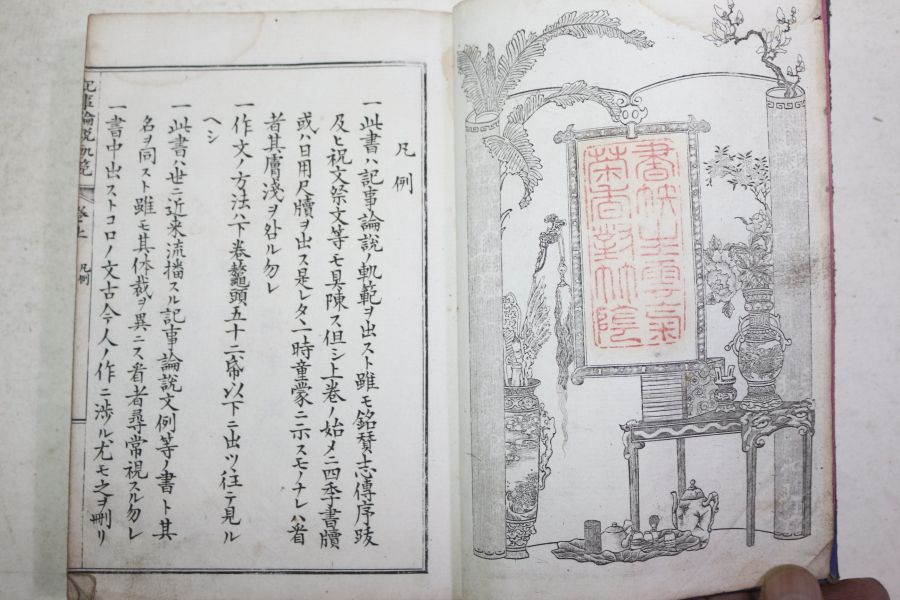 書帙生雲氣
茶香對竹陰
凡例
一此書ハ記事論說ノ軌範ヲ出スト雖モ銘賛志傳序跋
及ヒ祝文祭文等モ具陳ス但シ上巻ノ始メニ四季書牘
或ハ日用尺牘ヲ出ス是レタヽ一時童蒙ニ示スモノナレハ看
者其膚淺ヲ咎ル勿レ
一作文ノ方法ハ下巻鼇頭五十二帋以下ニ出ツ往テ見ル
ヘシ
一此書ハ世ニ近来流播スル記事論說文例等ノ書ト其
名ヲ同スト雖モ其体裁ヲ異ニス看者尋常視スル勿レ
一書中出ストコロノ文古今人ノ作ニ渉ル尤モ之ヲ刪リ
記事論說軌範 巻上 凡例